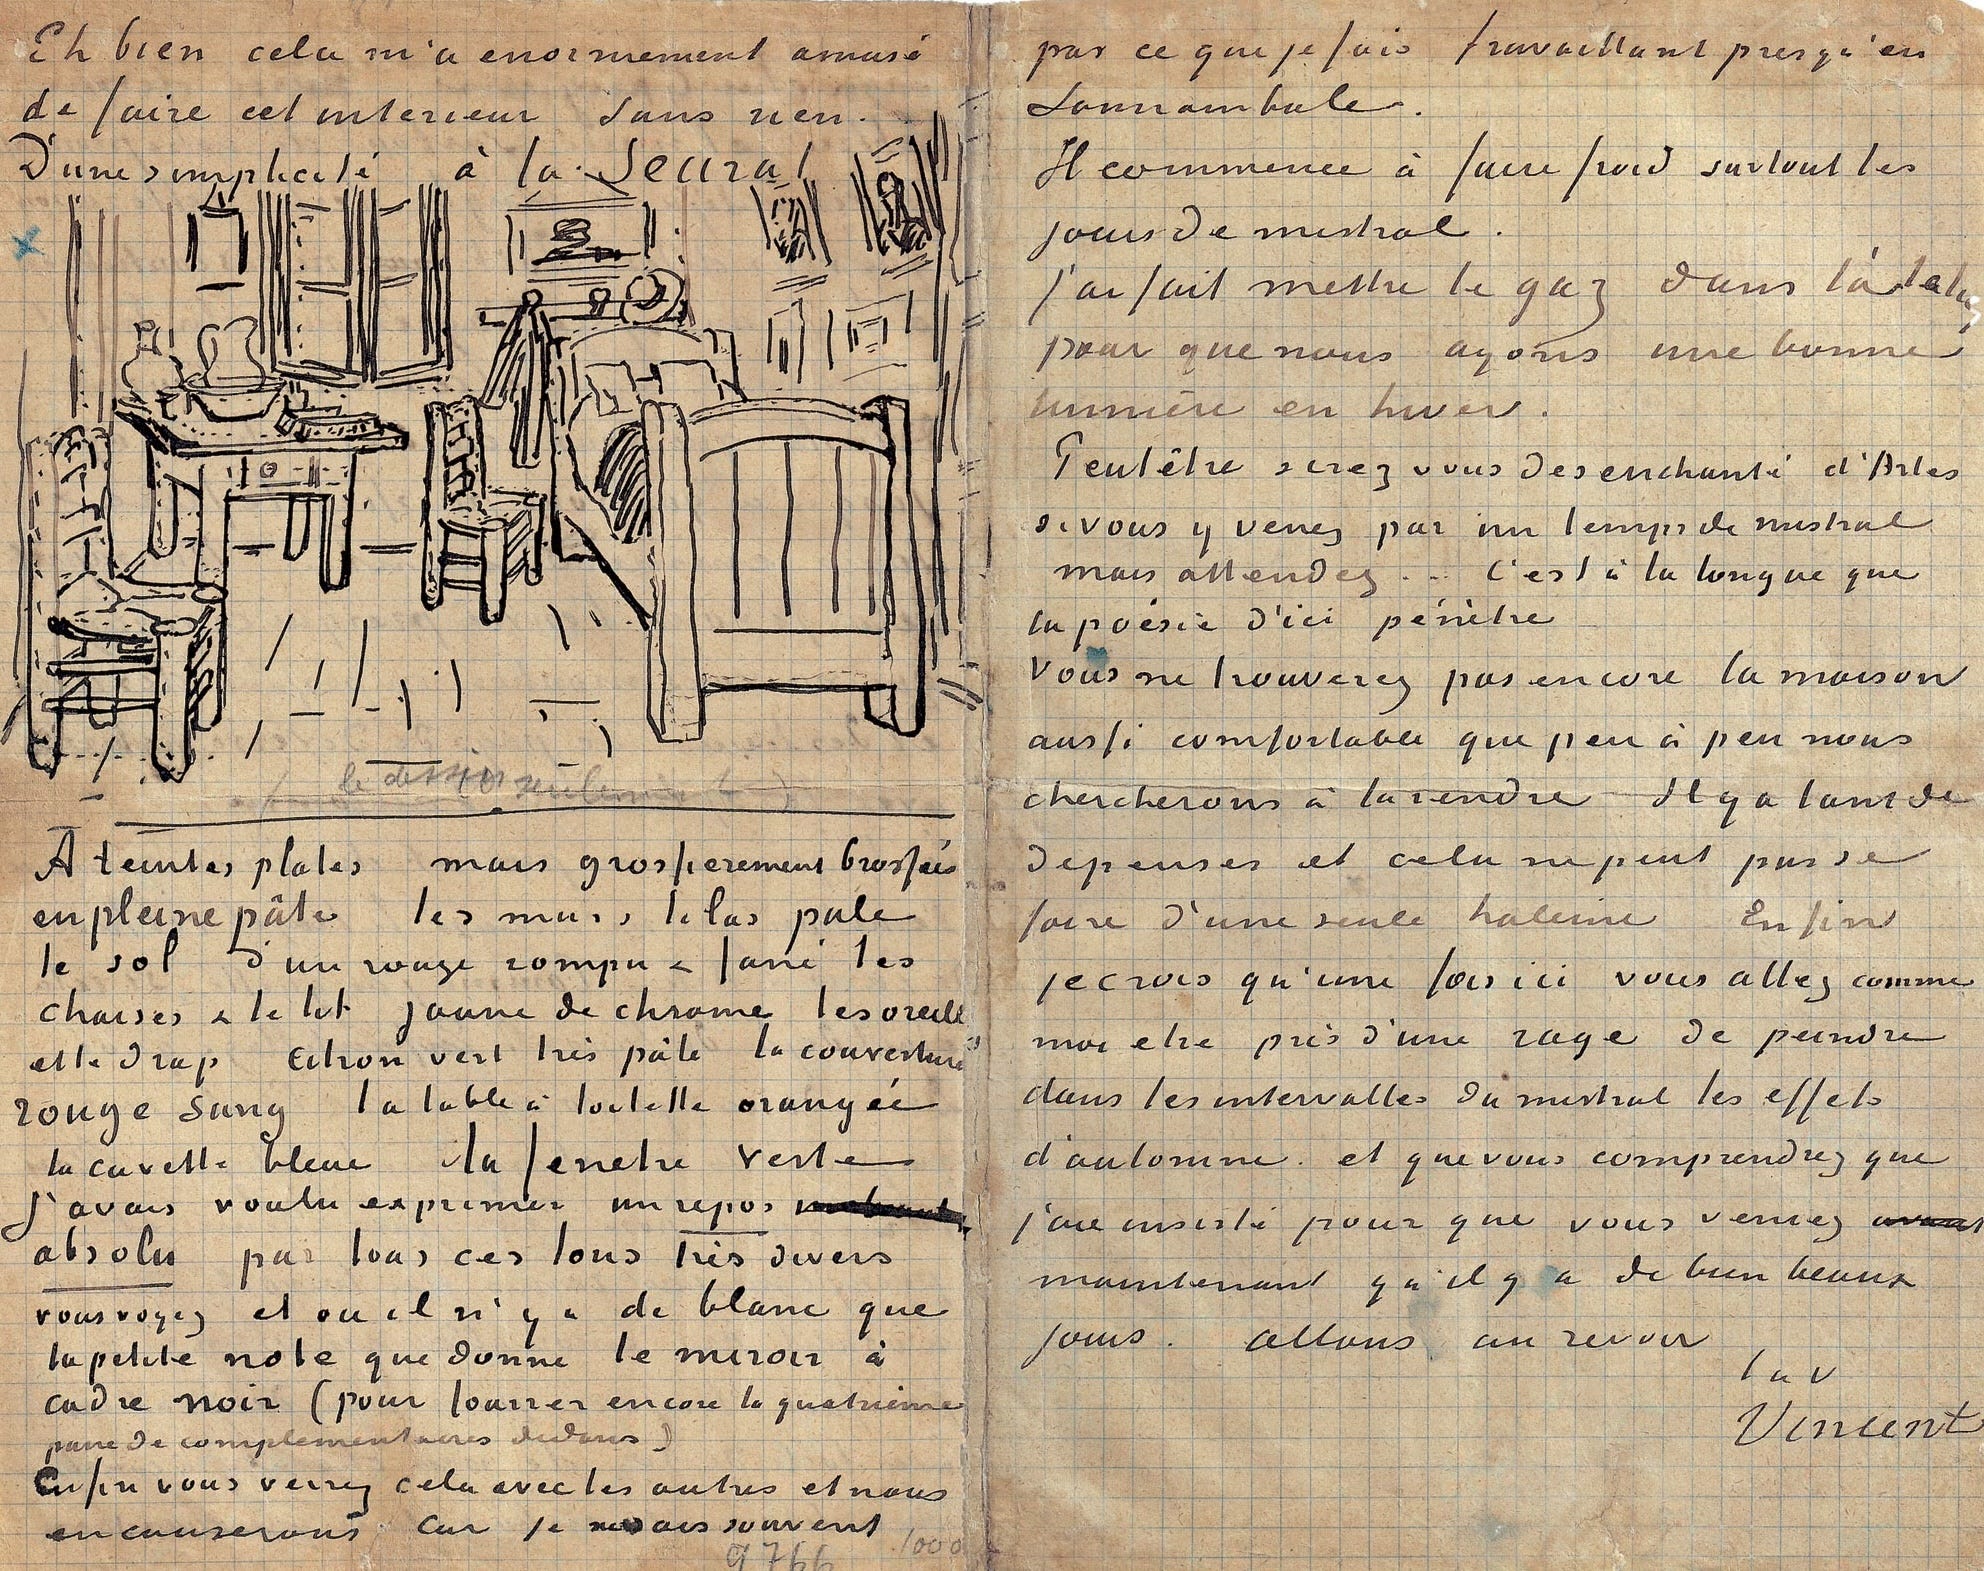 Eh bien cela m'a enormement amusé
de faire cet interieur sans rien.
D'une simplicité à la Seurat
(le dessin seulement)
À teintes plates mais grossierement brossées
en pleine pâte les murs lilas pale
le sol d'un rouge rompu & fané les
chaises & le lit jaune de chrome les oreillers
et le drap citron vert très pâle la couverture
rouge sang la table à toilette orangée
la cuvette bleue la fenetre verte
J'avais voulu exprimer un repos
absolu par tous ces tons très divers
vous voyez et ou il n'y a de blanc que
la petite note que donne le miroir à
cadre noir (pour fourrer encore la quatrieme
paire de complementaires dedans)
Enfin vous verrez cela avec les autres et nous
en causerons car je ne sais souvent
9766 1000
par ce que je fais travaillant presqu'en
somnambule.
Il commence à faire froid surtout les
jours de mistral.
j'ai fait mettre le gaz dans l'atelier
pour que nous ayons une bonne
lumière en hiver.
Peutêtre serez vous desenchanté d'Arles
si vous y venez par un temps de mistral
mais attendez... C'est à la longue que
la poésie d'ici pénètre
Vous ne trouverez pas encore la maison
aussi comfortable que peu à peu nous
chercherons à la rendre Il y a tant de
depenses et cela ne peut pas se
faire d'une seule haleine Enfin
je crois qu'une fois ici vous allez comme
moi etre pris d'une rage de peindre
dans les intervalles du mistral les effets
d'automne. et que vous comprendrez que
j'aie insisté pour que vous veniez
maintenant qu'il y a de bien beaux
jours. allons au revoir
t. à v
Vincent